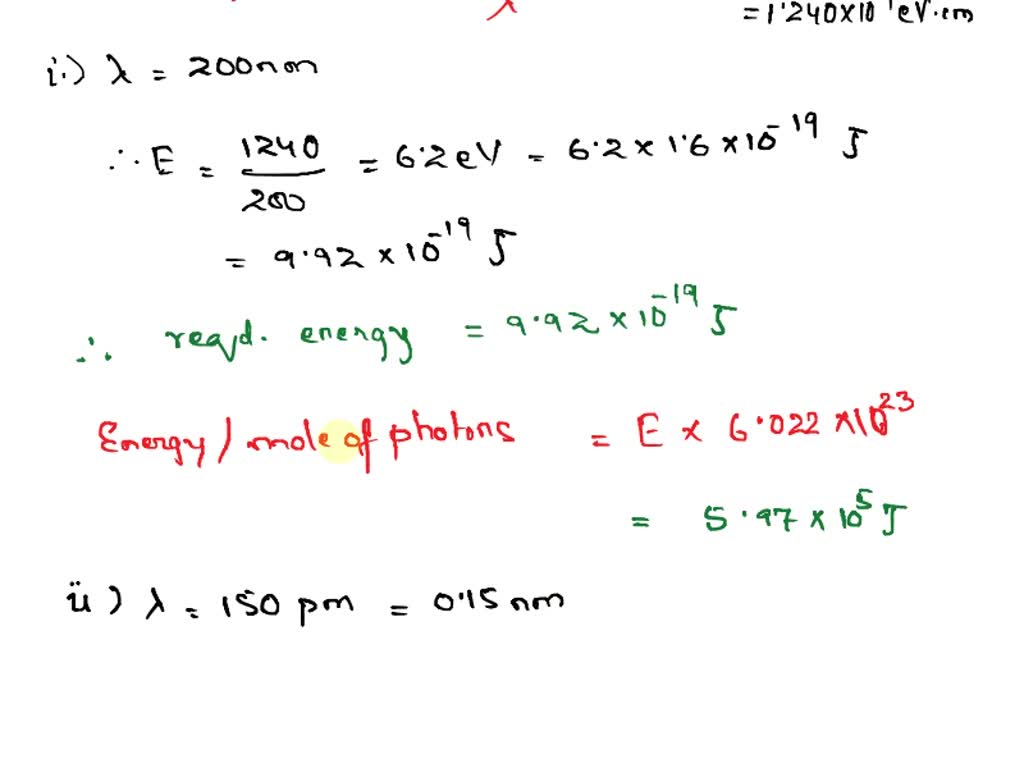 λ
= 1.240×10 eV.cm
i.) λ = 200nm
∴ E = 1240/200 = 6.2 eV = 6.2 × 1.6 × 10^-19 J
= 9.92 × 10^-19 J
∴ reqd. energy = 9.92 × 10^-19 J
Energy / mole of photons = E × 6.022 × 10^23
= 5.97 × 10^5 J
ii) λ = 150 pm = 0.15 nm